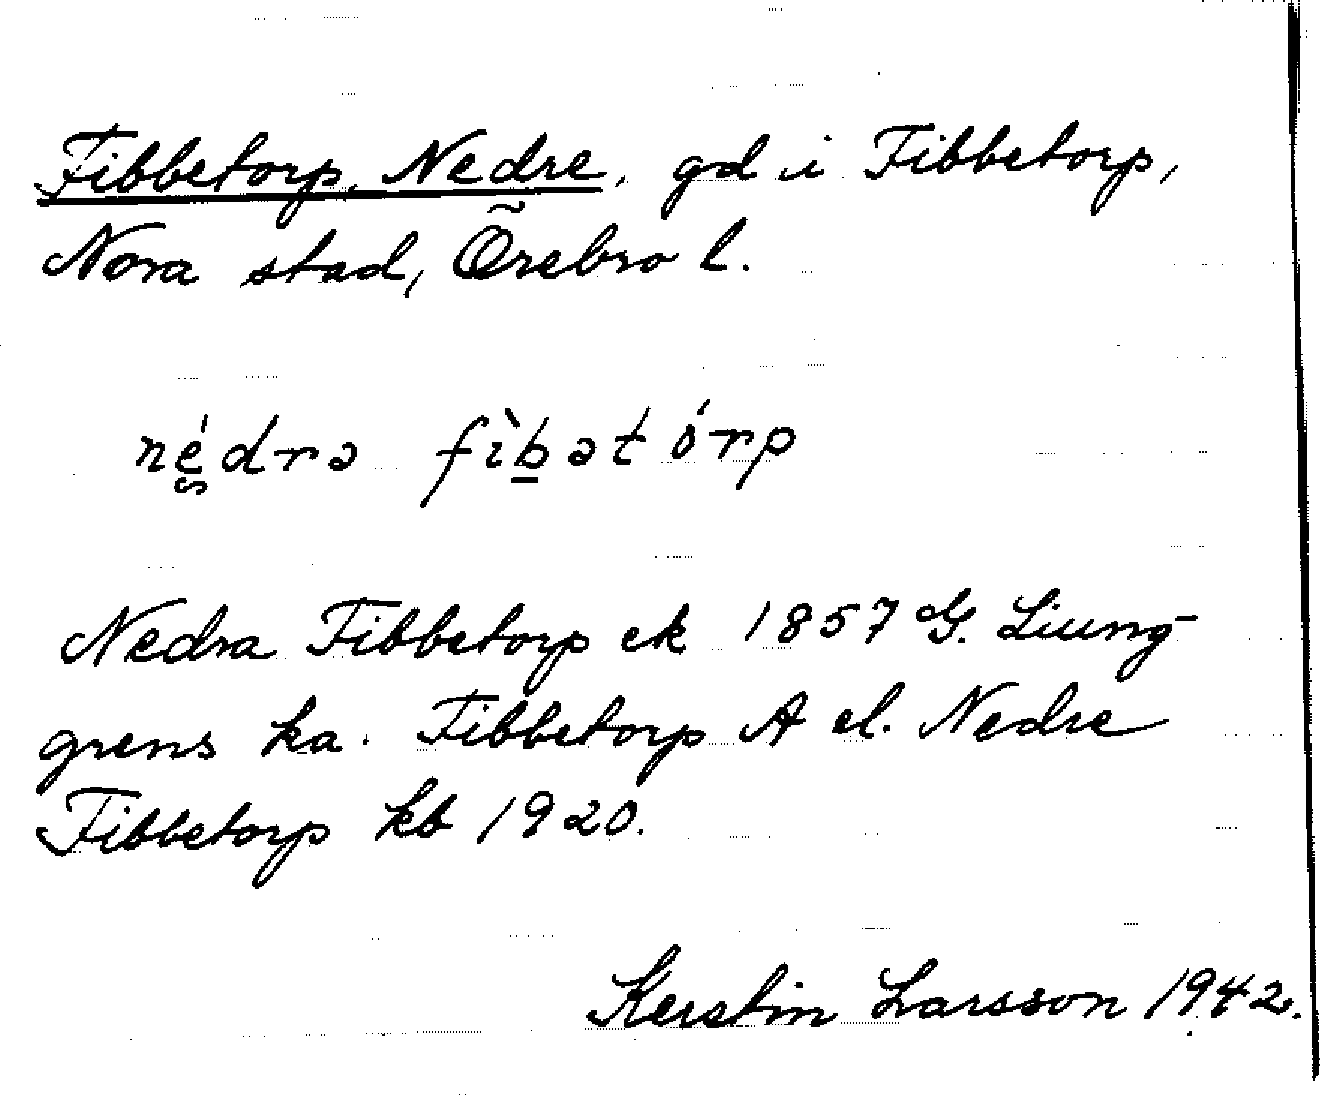 Fibbetorp, Nedre, gd i Fibbetorp,
Nora stad, Örebro l.
nédrə fìbətórp
Nedra Fibbetorp ek 1857 G. Liung-
grens ka. Fibbetorp A el. Nedre
Fibbetorp kb 1920.
Kerstin Larsson 1942.